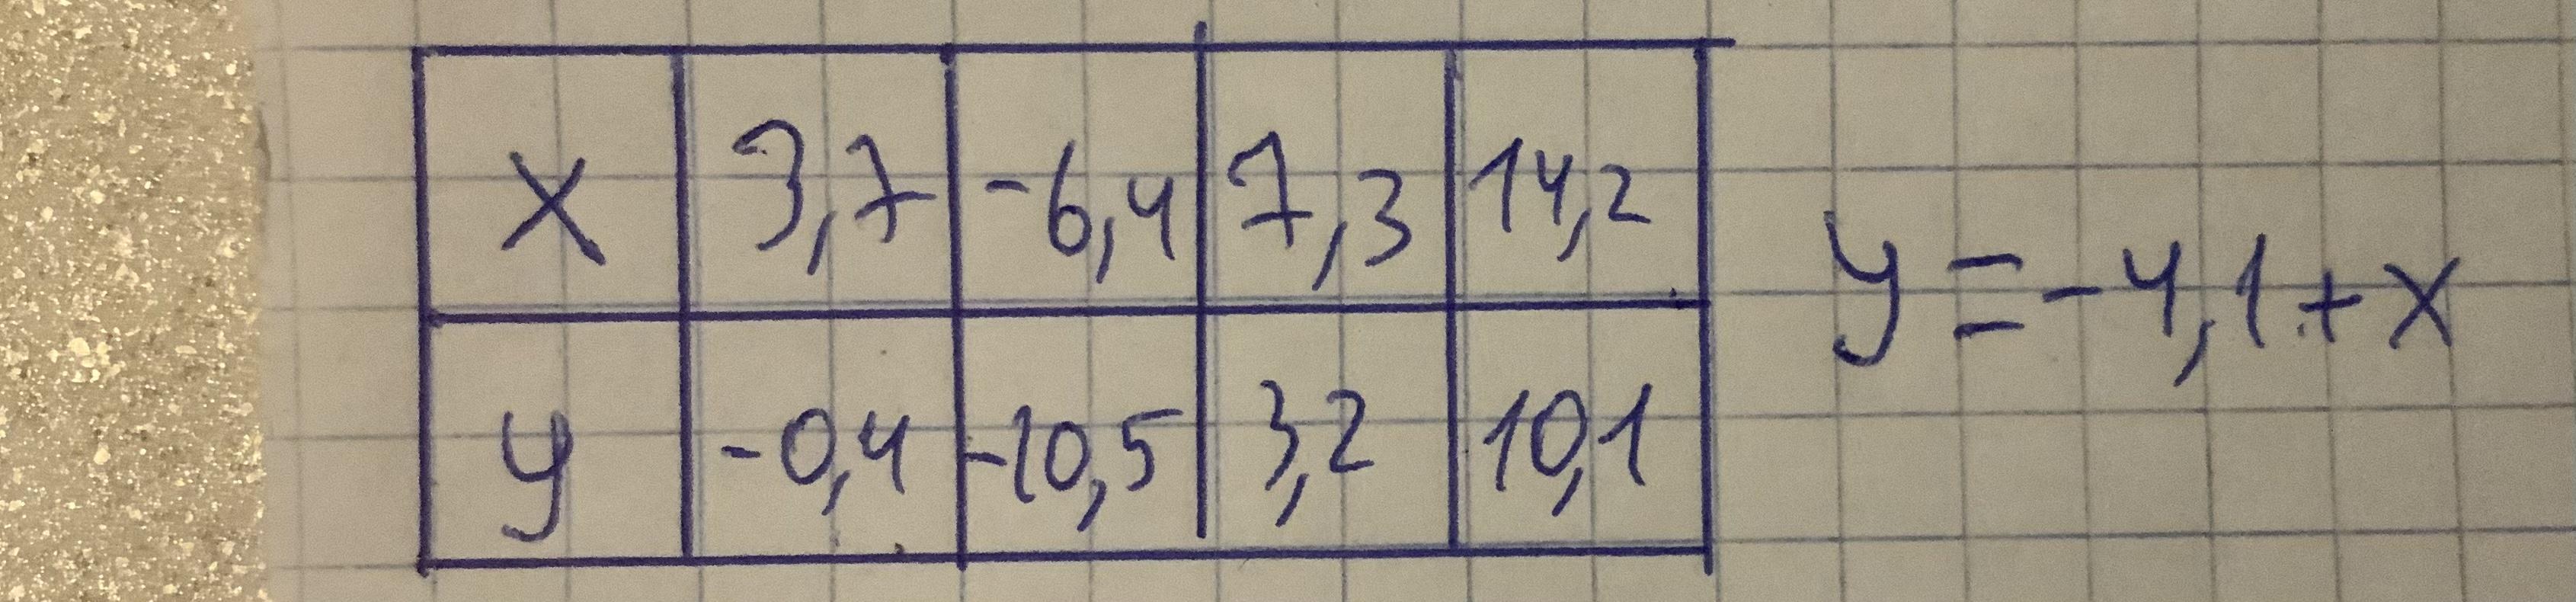 x 3,7 -6,4 7,3 14,2
y = -4,1 + x
y -0,4 -10,5 3,2 10,1